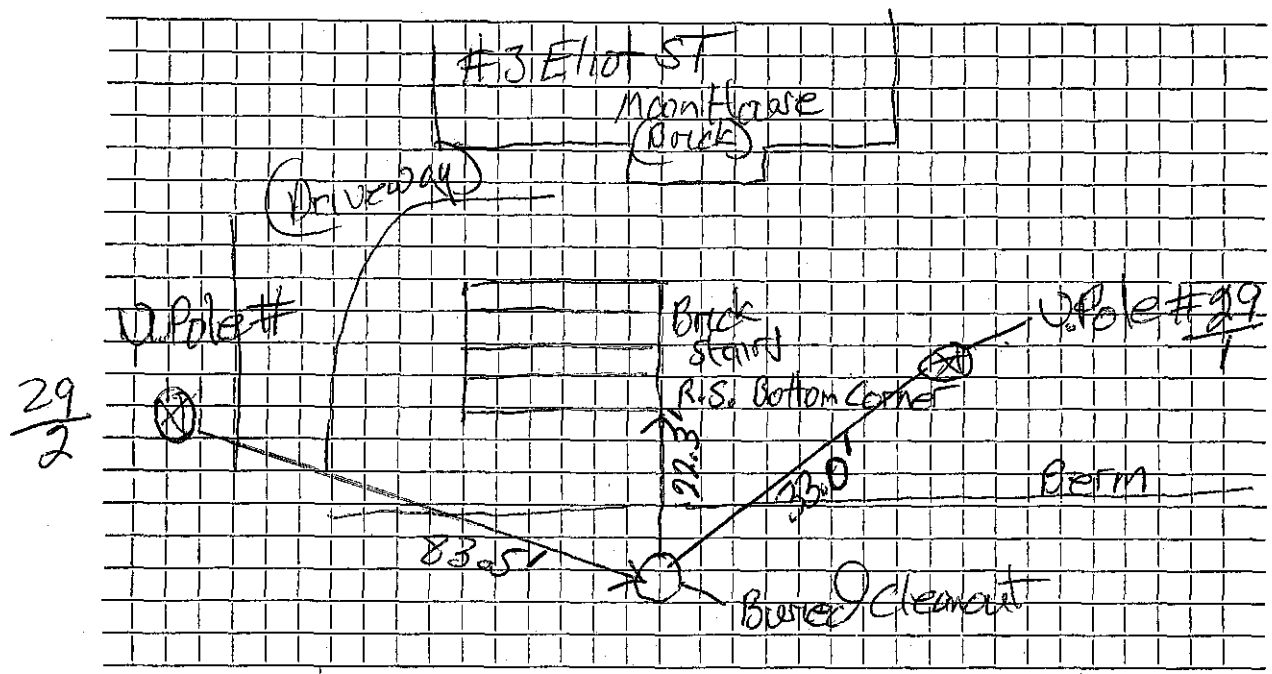 #3 Eliot ST
Main House
Brick
Driveway
U.Pole #
29
2
Brick
Stairs
R.S. Bottom Corner
U.Pole #29
1
22.3'
33.0'
Berm
83.5'
Buried Cleanout